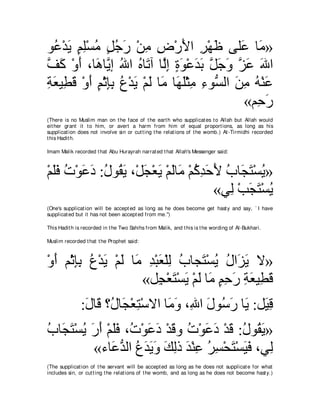 «مَا عَلَى ظَهْرِ الْأَرْضِ مِنْ رَجُلٍ مُسْلِمٍ يَدْعُو
اللهَ عَزَّ وَجَلَّ بَدَعْوَةٍ إِلَّا آتَاهُ اللهُ إِيَّاهَا، أَوْ كَفَّ
عَنْهُ مِنَ السُّوءِ مِثْلَهَا مَا لَمْ يَدْعُ بِإِثْمٍ أَوْ قَطِيعَةِ
رَحِمٍ»
(There is no Muslim man on the face of the earth who supplicates to Allah but Allah would
either grant it to him, or avert a harm from him of equal proportions, as long as his
supplication does not involve sin or cutting the relations of the womb.) At-Tirmidhi recorded
this Hadith.
Imam Malik recorded that Abu Hurayrah narrated that Allah's Messenger said:
«يُسْتَجَابُ لِأَحَدِكُمْ مَالَمْ يَعْجَلْ، يَقُولُ: دَعَوْتُ فَلَمْ
يُسْتَجَبْ لِي»
(One's supplication will be accepted as long as he does become get hasty and say, `I have
supplicated but it has not been accepted from me.")
This Hadith is recorded in the Two Sahihs from Malik, and this is the wording of Al-Bukhari.
Muslim recorded that the Prophet said:
«لَا يَزَالُ يُسْتَجَابُ لِلْعَبْدِ مَا لَمْ يَدْعُ بِإِثْمٍ أَوْ
قَطِيعَةِ رَحِمٍ مَا لَمْ يَسْتَعْجِلْ»
قِيلَ: يَا رَسُولَ اللهِ، وَمَا الاسْتِعْجَالُ؟ قَالَ:
«يَقُولُ: قَدْ دَعَوْتُ وَقَدْ دَعَوْتُ، فَلَمْ أَرَ يُسْتَجَابُ
لِي، فَيَسْتَحْسِرُ عِنْدَ ذَلِكَ وَيَدَعُ الدُّعَاءَ»
(The supplication of the servant will be accepted as long as he does not supplicate for what
includes sin, or cutting the relations of the womb, and as long as he does not become hasty.)